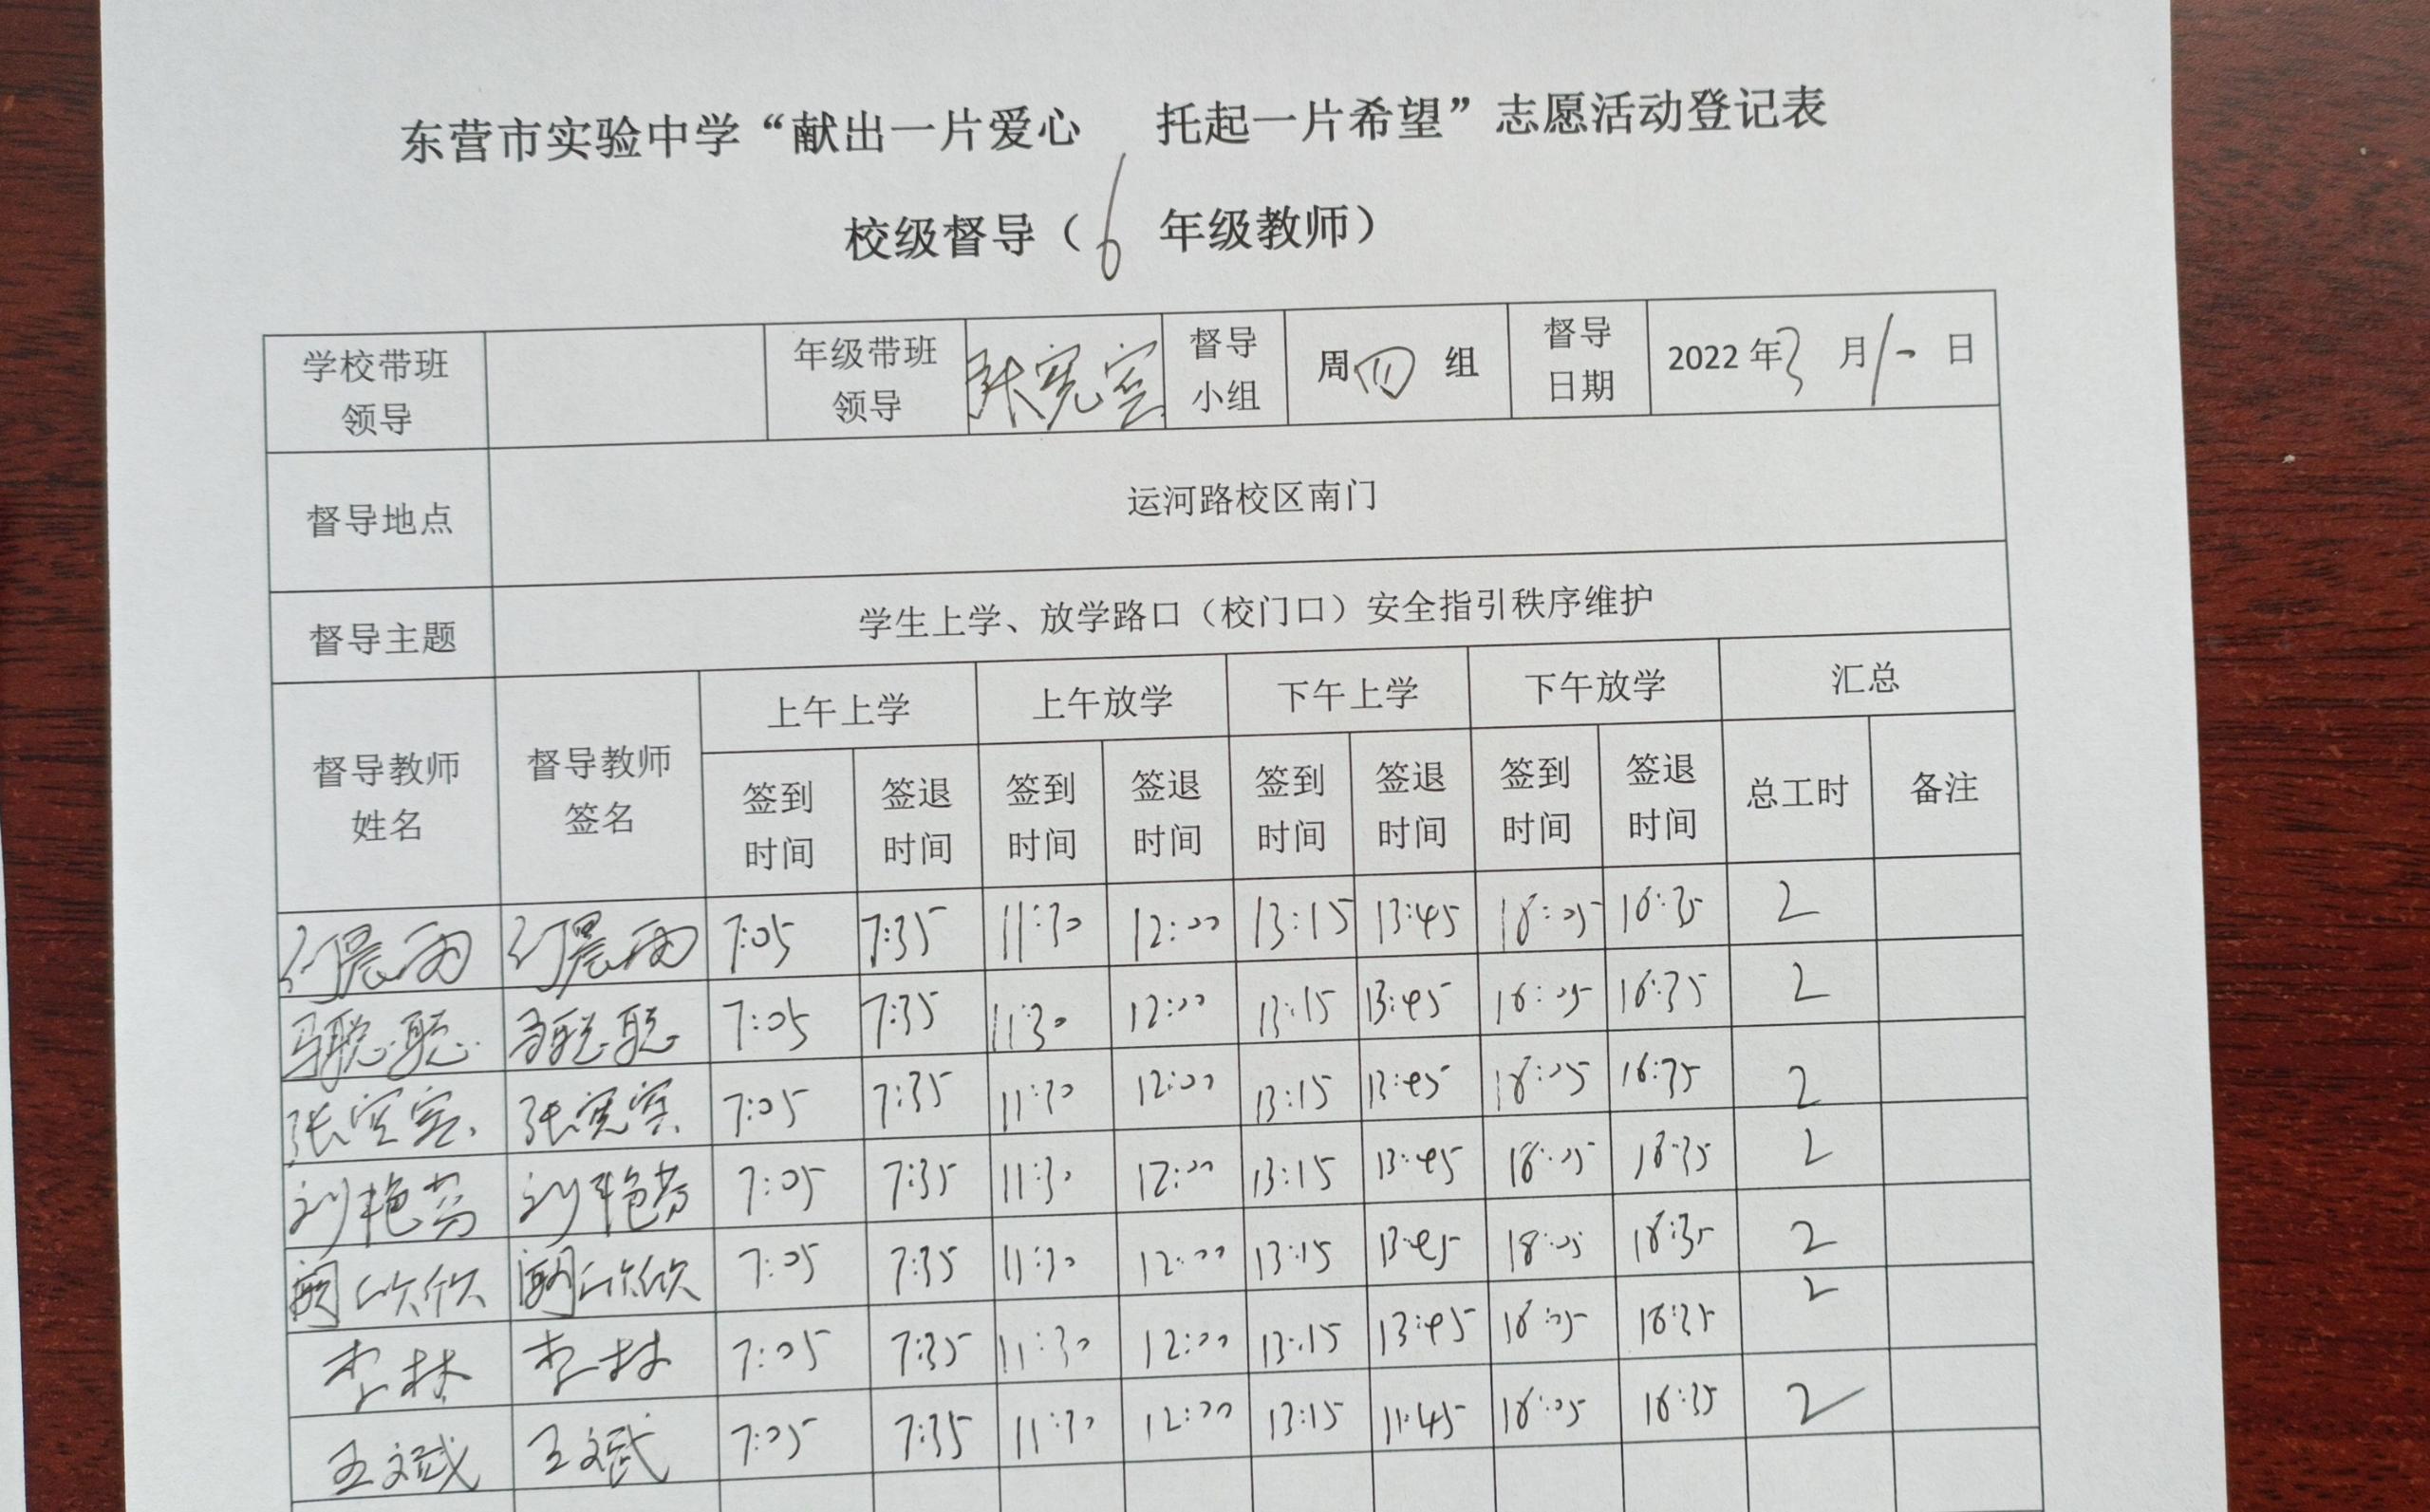 东营市实验中学“献出一片爱心 托起一片希望”志愿活动登记表
校级督导（6 年级教师）
学校带班领导 年级带班领导 张宪宝 督导小组 周四组 督导日期 2022年3月10日
督导地点 运河路校区南门
督导主题 学生上学、放学路口（校门口）安全指引秩序维护
督导教师姓名 督导教师签名 上午上学 上午放学 下午上学 下午放学 汇总
签到时间 签退时间 签到时间 签退时间 签到时间 签退时间 签到时间 签退时间 总工时 备注
7:05 7:35 11:30 12:00 13:15 13:45 18:05 18:35 2
马聪聪 马聪聪 7:05 7:35 11:30 12:00 13:15 13:45 18:05 18:35 2
张宪宝 张宪宝 7:05 7:35 11:30 12:00 13:15 13:45 18:05 18:35 2
刘艳芳 刘艳芳 7:05 7:35 11:30 12:00 13:15 13:45 18:05 18:35 2
欣欣 欣欣 7:05 7:35 11:30 12:00 13:15 13:45 18:05 18:35 2
李林 李林 7:05 7:35 11:30 12:00 13:15 13:45 18:05 18:35 2
王斌 王斌 7:05 7:35 11:30 12:00 13:15 11:45 18:05 18:35 2